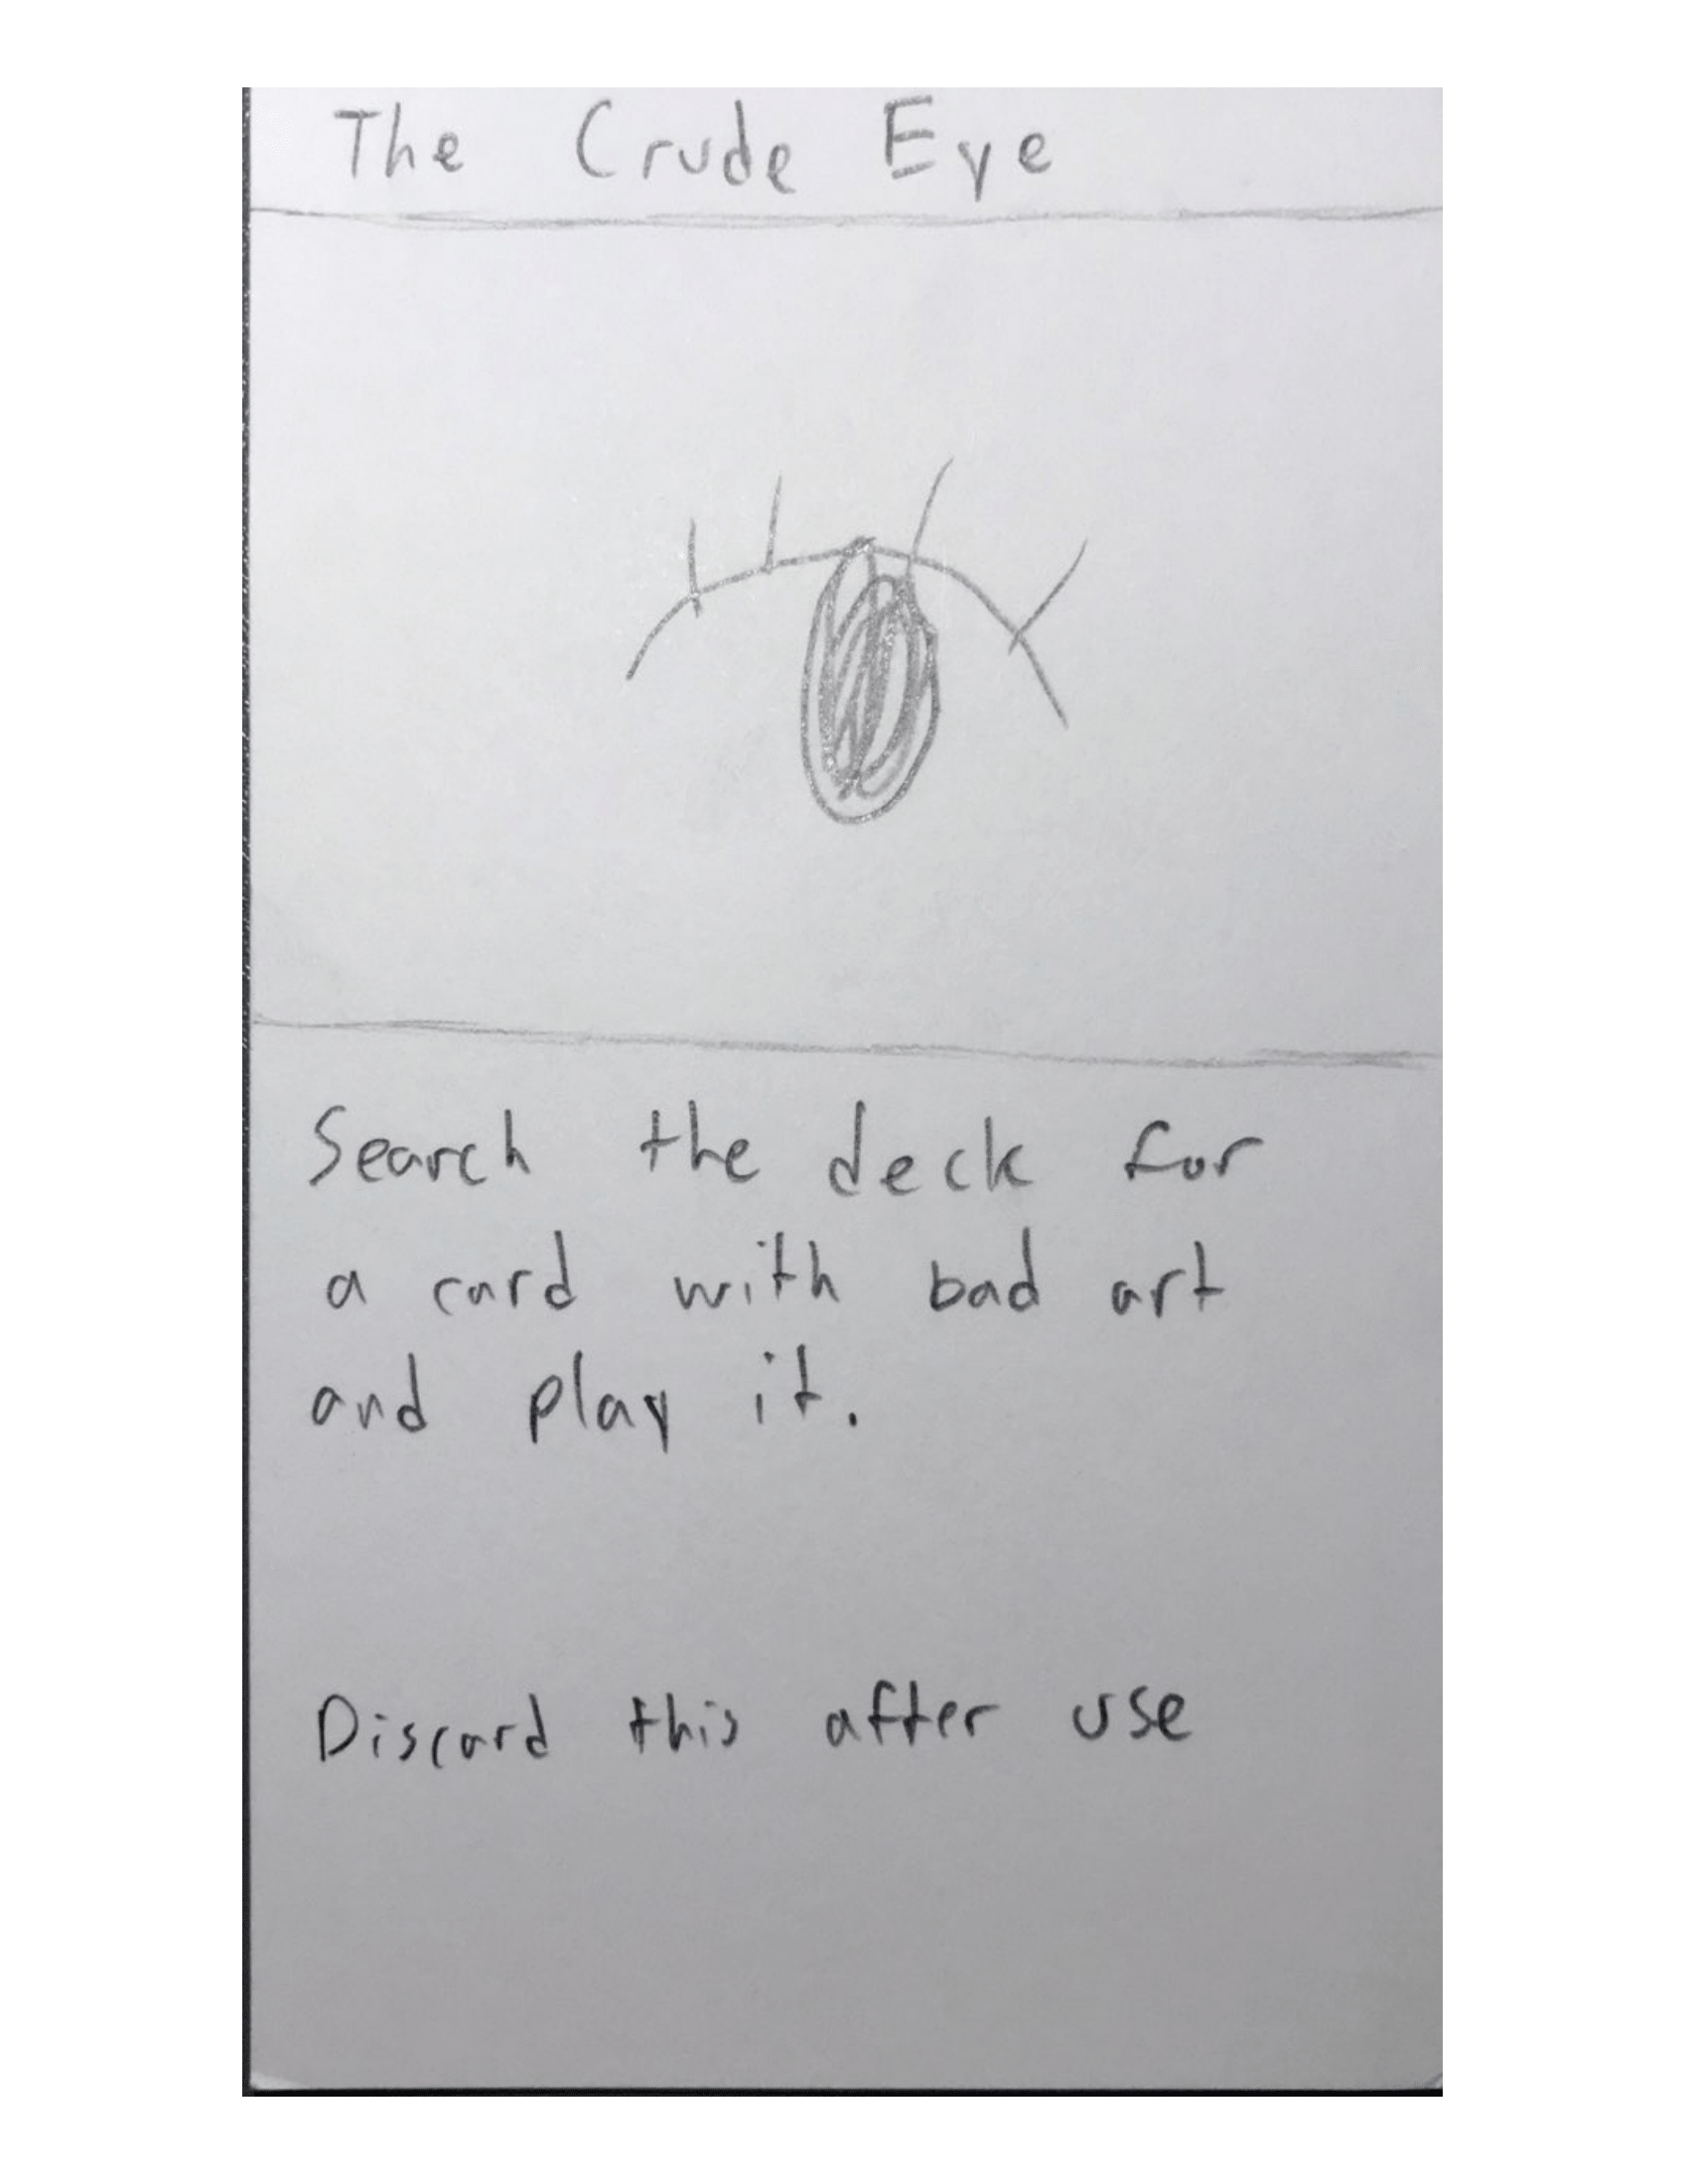 The Crude Eye
Search the deck for
a card with bad art
and play it.
Discard this after use